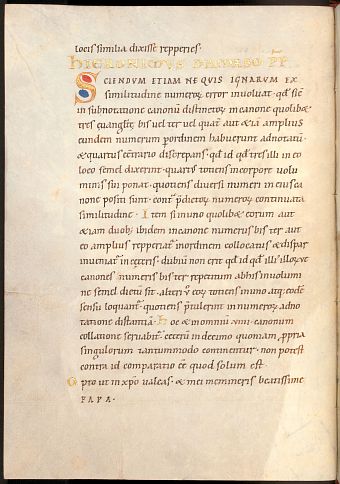 locis similia dixisse repperies.
HIERONIMUS DAMASO PP
SCIENDUM ETIAM NE QUIS IGNARUM EX
similitudine numeroꝝ error inuoluat· qđ sic
in subnotatione canonū distinctos in canone quolibet
tres euangłte bis uel ter uel quat aut etiā amplius
eundem numerum ꝑordinem habuerint adnotatū·
& quartus ecc̄trario discrepans· qđ id qđ tres illi in eo
loco semel dixerint· quartus totiens incorpore uolu
minis sui ponat· quotiens diuersi numeri in eius ca
none positi sunt· cont̄ p̄dictoꝝ numeroꝝ continuata
similitudine· Item si uno quolibet eorum aut
etiam duob; ibidem in canone numerus bis ter aut
eo amplius reppertat̄ inordinem collocatus & dispar
inueniat̄ in ceteris· dubiū non erit qđ id qđ illi· illoꝝue
canones numeris bis ter repetitum ab his in uolumi
ne semel dictū sit· alteri uero eoꝝ totiens in uno atq; eodē
sensu loquant̄· quotiens p̄tulerint in numeroꝝ adno
tatione distantiā· Hoc et in omnib; uiiii· canonum
collatione seruabit̄· ceterū in decimo quoniam ꝓpria
singulorum tantummodo continentur· non potest
contra id comparatio eē quod solum est·
Opto ut in xp̄o ualeas· & mei memineris beatissime
PAPA·